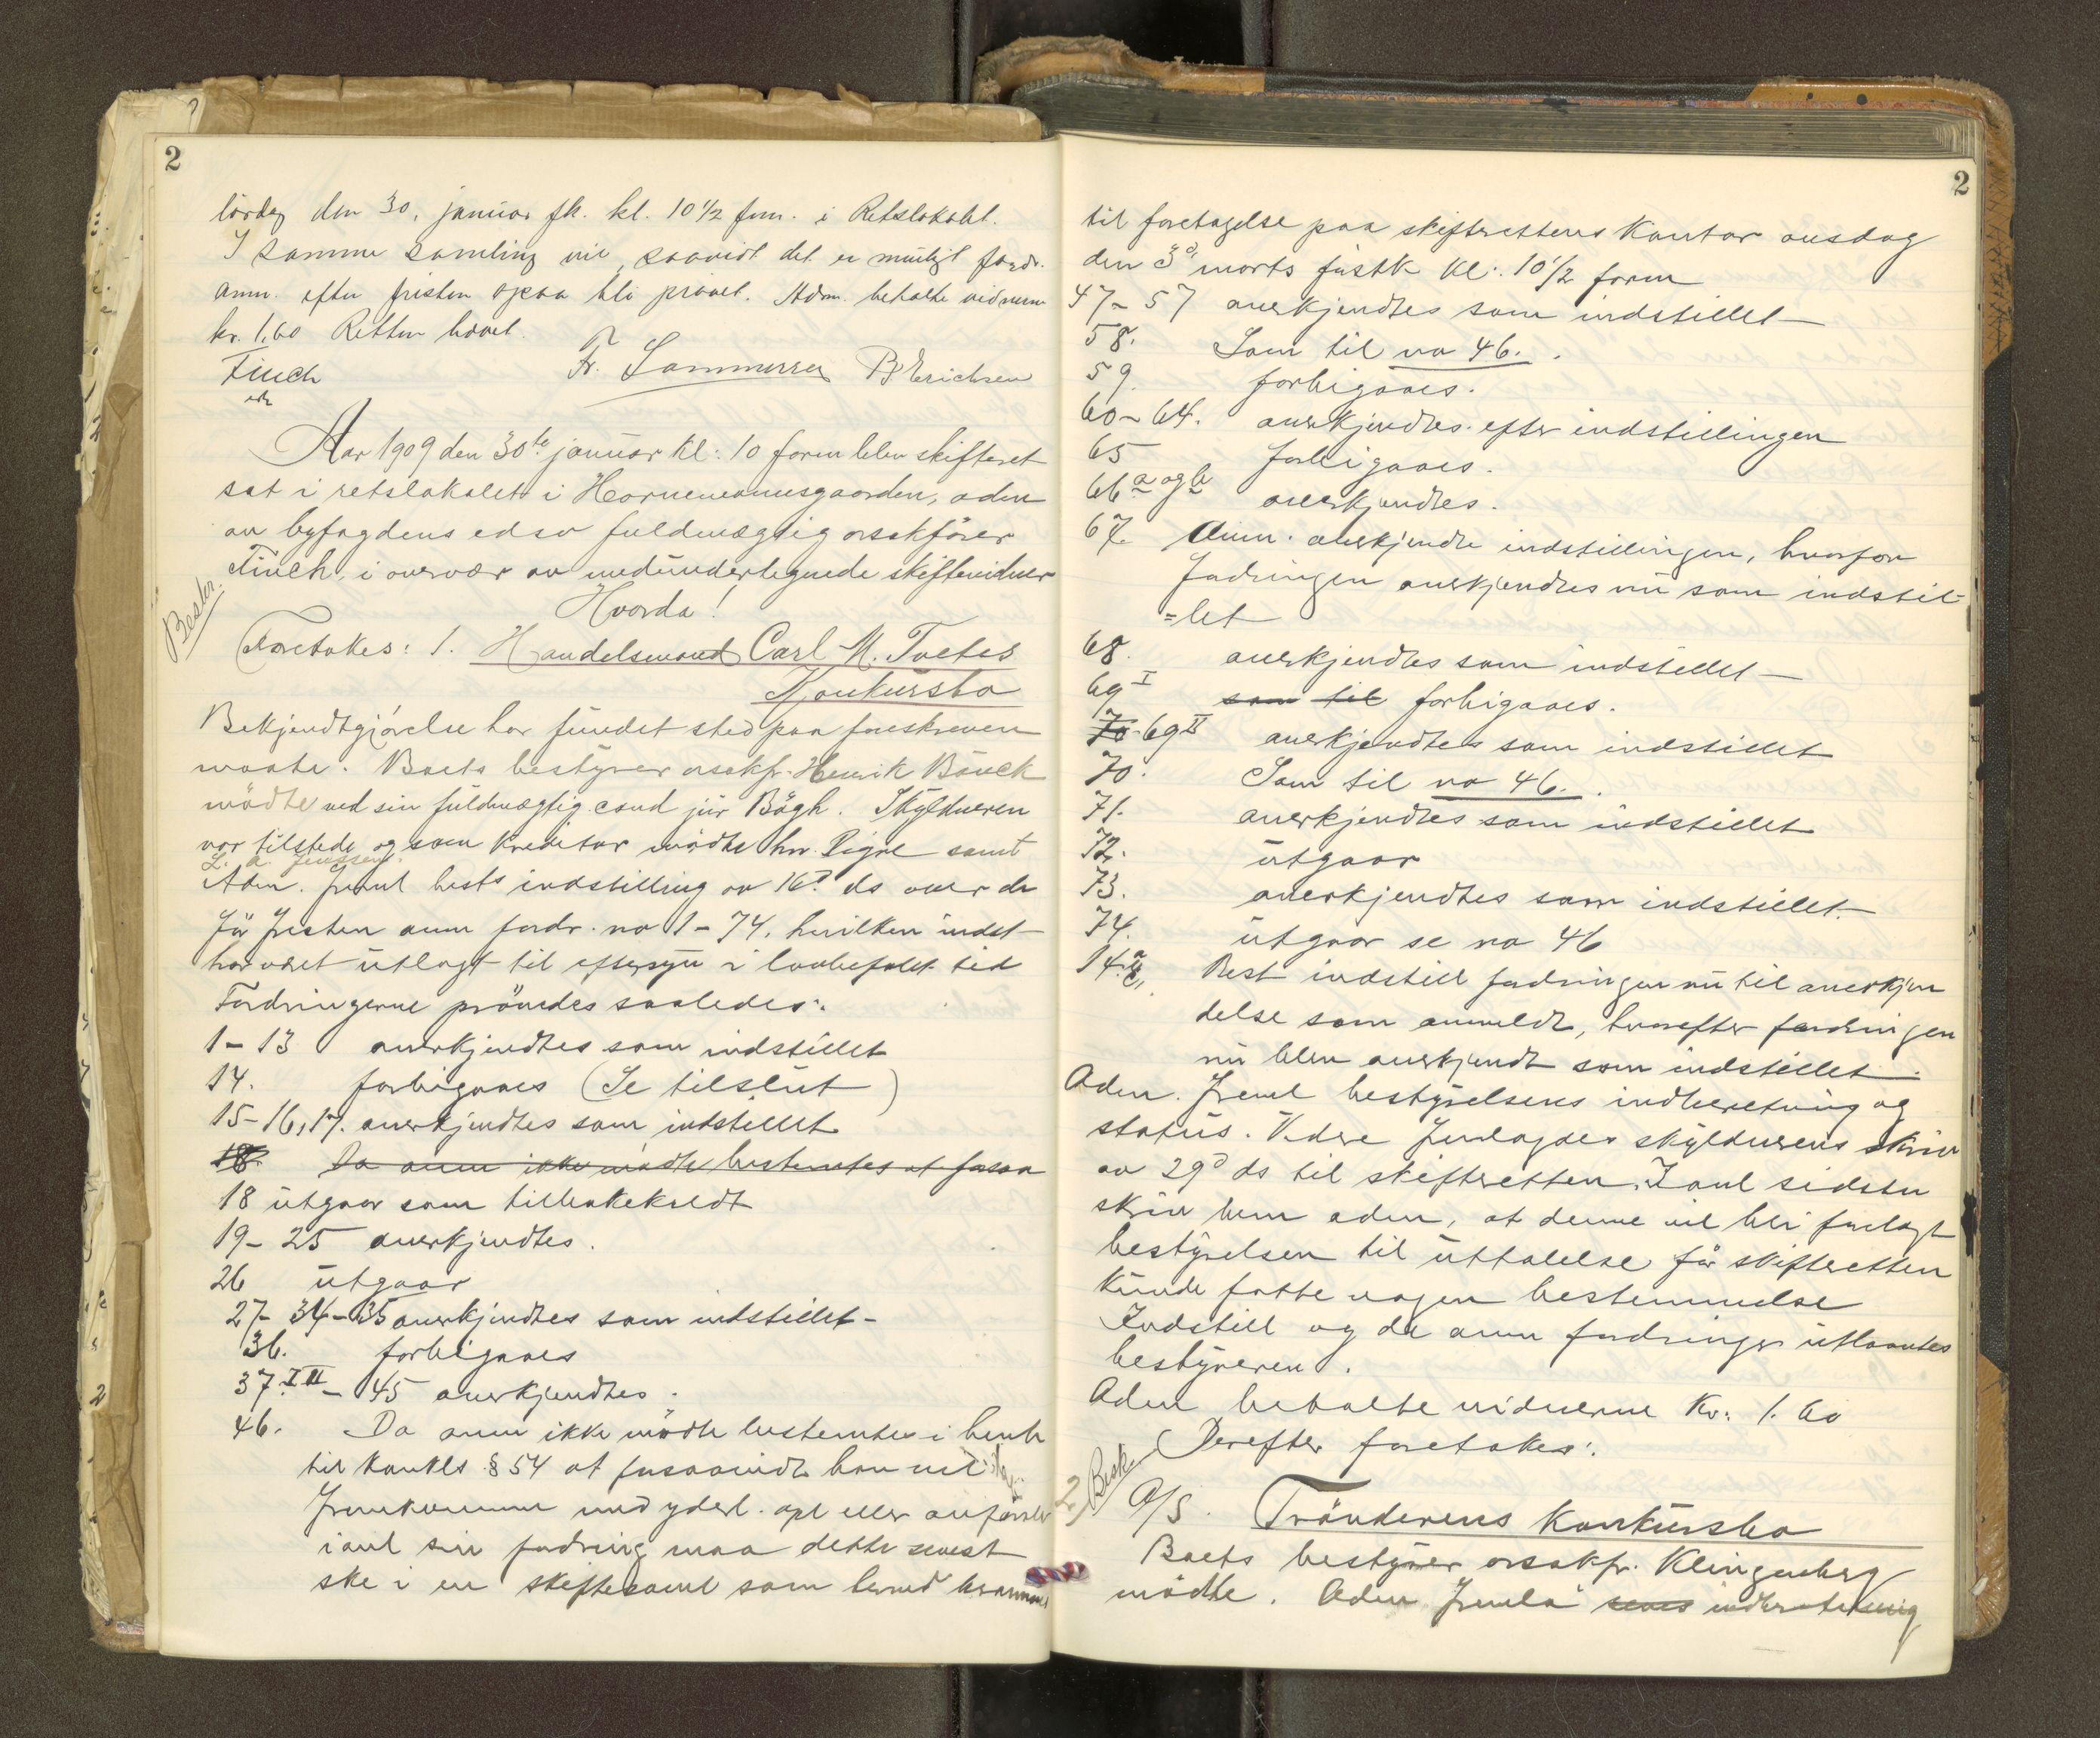 2
lördag den 30. januar fk. kl. 10 1/2 fm. i Retslokalet.
I samme samling vil, saavidt det er muligt fordr.
anm. efter fristen ogsaa bli prövet. Adm. betalte vidnerne
kr. 1,60 Retten hævet.
Finch
Fr. Sommerser B. Erichsen
Aar 1909 den 30te januar kl: 10 form blev skifteret
sat i retslokalet i Hornemannsgaarden, adm
av byfogdens edsv fuldmægtig orsakförer
Finch, i overvær av medundertegnede skiftevidner
Hvorda!
Besk.
Foretokes: 1. Handelsmand Carl M. Tvetes
Konkursbo
Bekjendtgjörelse har fundet sted paa foreskreven
maate. Boets bestyrer orsakfr. Henrik Bauck
mödte ved sin fuldmægtig cand jur Bögh. Skyldneren
var tilstede og som kreditor mödte hr. Digre samt
L. A. Jenssen.
Adm. freml best indstilling av 16d ds over de
för fristen anm fordr. no 1-74, hvilken indst
har været utlagt til eftersyn i lovbefalet tid
Fordringerne prövedes saaledes:
1-13 anerkjendtes som indstillet
14. forbigaaes (Se tilslut)
15-16, 17. anerkjendtes som indstillet
18. Da anm ikke mödte bestemtes at forsaa
18 utgaar som tilbakekaldt
19-25 anerkjendtes.
26 utgaar
27-34-35 anerkjendtes som indstillet-
36. forbigaaes
37. I II - 45 anerkjendtes.
46. Da anm ikke mödte bestemtes i henh
til konkls § 54 at forsaavidt han vil
fremkomme med yderl. opl eller anförsler
i anl sin fordring maa dette senest
ske i en skiftesaml som herved berammes
2
til foretagelse paa skifterettens kontor onsdag
den 3d marts förstk kl: 10 1/2 form
47-57 anerkjendtes som indstillet
58. Som til no 46.
59. forbigaaes.
60-64. anerkjendtes efter indstillingen
65 forbigaaes.
66 a og b anerkjendtes.
67. Anm. anerkjendte indstillingen, hvorfor
fordringen anerkjendtes nu som indstil-
=let
68. anerkjendtes som indstillet
69 I som til forbigaaes.
70 69 II anerkjendtes som indstillet
70. Som til no 46.
71. anerkjendtes som indstillet
72. utgaar
73. anerkjendtes som indstillet.
74. utgaar se no 46
14. Best indstill fordringen nu til anerkjen
delse som anmeldt, hvorefter fordringen
nu blev anerkjendt som indstillet.
Adm. freml bestyrelsens indberetning og
status. Videre fremlagdes skyldnerens skriv
av 29d ds til skifteretten. I anl sidste
skriv bem adm, at denne vil bli forelagt
bestyrelsen til uttalelse för skifteretten
kunde fatte nogen bestemmelse
Indstill og de anm fordringer utlaantes
bestyreren.
Adm betalte vidnerne Kr. 1.60
Derefter foretokes:
Besk.
2) A/S. Trönderens Konkursbo
Boets bestyrer orsakfr. Klingenberg
mödte. Adm fremla indberetning